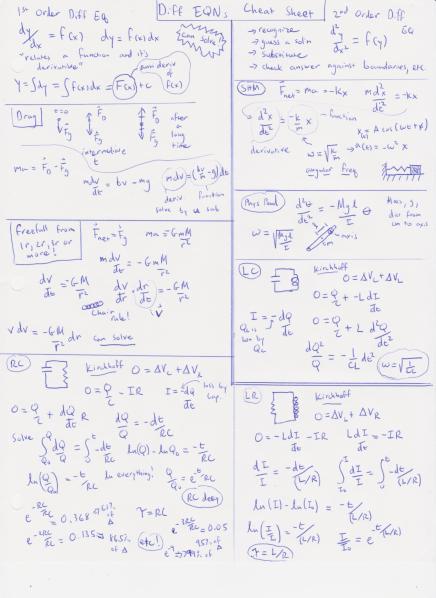 Diff EQNs Cheat Sheet
1st Order Diff Eq
dy/dx = f(x) dy = f(x)dx
can solve
"relates a function and its derivative"
y = ∫dy = ∫f(x)dx = F(x)+c
Drag
t=0
F_D
F_g
intermediate t
after a long time
ma = F_D - F_g
m dv/dt = bv - mg
deriv function
solve by u sub
Freefall from
1r, 2r, 3r or more!
F_net = F_g ma = GmM/r²
m dv/dt = -GmM/r²
dv/dt = -GM/r²
dv/dr · dr/dt = -GM/r²
chain rule!
v
v dv = -GM/r² dr can solve
RC
Kirchhoff
0 = ΔV_c + ΔV_R
0 = Q/C - IR
I = -dQ/dt
loss by cap.
0 = Q/C + dQ/dt R
dQ/Q = -dt/RC
Solve ∫dQ/Q = ∫-dt/RC ln(Q) - ln Q₀ = -t/RC
ln(Q/Q₀) = -t/RC
ln everything!
Q/Q₀ = e^-t/RC
RC decay
e^-RC/RC = 0.368
of Δ
τ = RC
e^-2RC/RC = 0.135 → 86.5% of Δ
etc!
e^-3RC/RC = 0.05
95% of Δ
2nd Order Diff EQ
→ recognize
→ guess a soln
→ substitute
→ check answer against boundaries, etc.
d²y/dx² = f(y)
SHM
F_net = ma = -kx
m d²x/dt² = -kx
d²x/dt² = -k/m x
function
derivative
x(t) = A cos(ωt+φ)
ω = √k/m
angular freq.
Phys Pend
d²θ/dt² = -Mgl/I θ
Mass, g,
dist from
cm to axis
ω = √Mgl/I
axis
cm
LC
Kirchhoff
0 = ΔV_c + ΔV_L
0 = Q/C - L dI/dt
I = -dQ/dt
0 = Q/C + L d²Q/dt²
ω = √1/LC
LR
Kirchhoff
0 = ΔV_L + ΔV_R
0 = -L dI/dt - IR L dI/dt = -IR
dI/I = -dt/(L/R) ∫dI/I = ∫-dt/(L/R)
ln(I) - ln(I₀) = -t/(L/R)
ln(I/I₀) = -t/(L/R)
I/I₀ = e^-t/(L/R)
τ = L/R